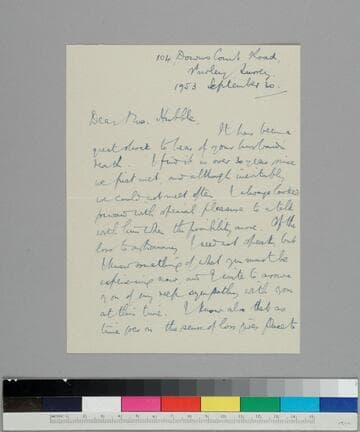 104 Downs Court Road,
Purley, Surrey.
1953 September 30.
Dear Mrs. Hubble,
It has been a
great shock to hear of your husband's
death. I find it is over 30 years since
we first met, and although inevitably
we could not meet often I always looked
forward with special pleasure to a talk
with him when the possibility arose. Of the
loss to astronomy I need not speak, but
I know something of what you must be
experiencing now and I write to assure
you of my deep sympathy with you
at this time. I know also that as
time goes on the sense of loss gives place to